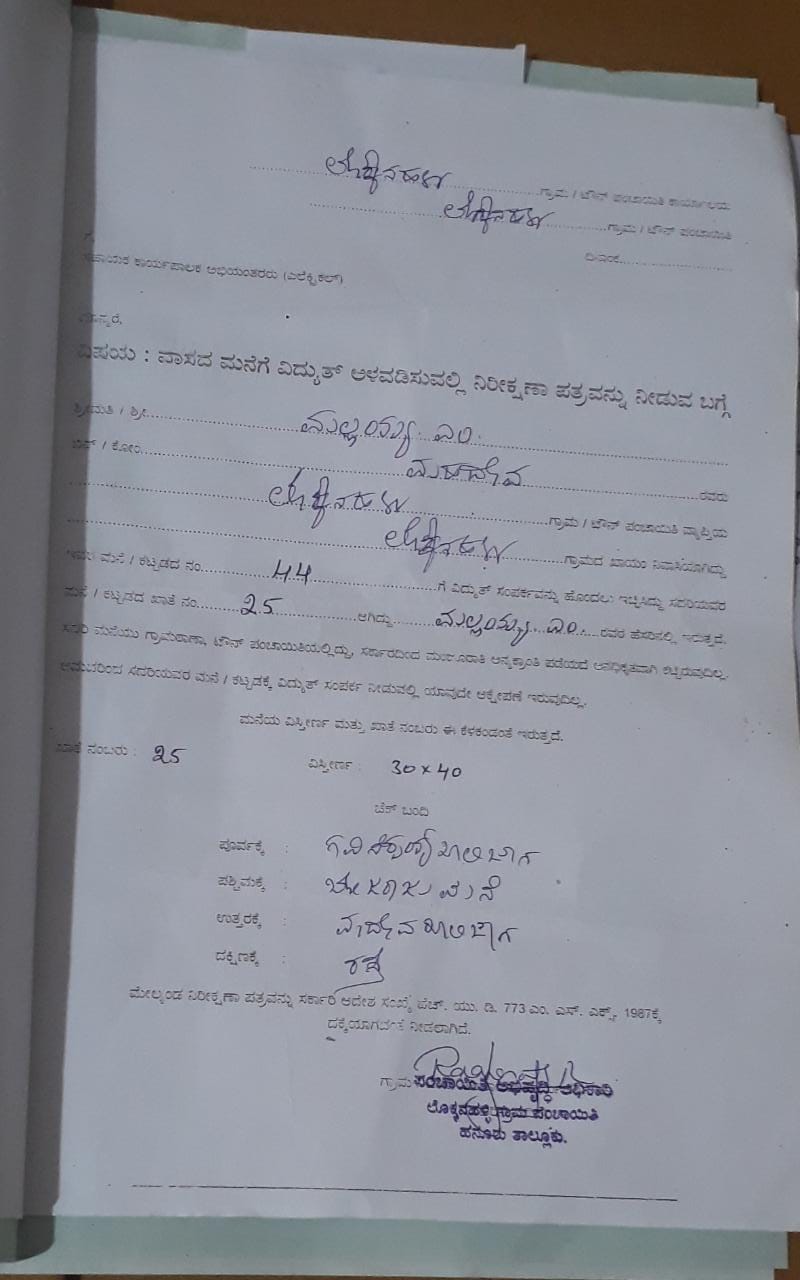 ಲೊಕ್ಕನಹಳ್ಳಿ ಗ್ರಾಮ / ಟೌನ್ ಪಂಚಾಯಿತಿ ಕಾರ್ಯಾಲಯ
ಲೊಕ್ಕನಹಳ್ಳಿ ಗ್ರಾಮ / ಟೌನ್ ಪಂಚಾಯಿತಿ
ದಿನಾಂಕ
ಗೆ,
ಸಹಾಯಕ ಕಾರ್ಯಪಾಲಕ ಅಭಿಯಂತರರು (ಎಲೆಕ್ಟ್ರಿಕಲ್)
ಮಾನ್ಯರೆ,
ವಿಷಯ : ವಾಸದ ಮನೆಗೆ ವಿದ್ಯುತ್ ಅಳವಡಿಸುವಲ್ಲಿ ನಿರೀಕ್ಷಣಾ ಪತ್ರವನ್ನು ನೀಡುವ ಬಗ್ಗೆ
ಶ್ರೀಮತಿ / ಶ್ರೀ ಮಲ್ಲಯ್ಯ ಎಂ.
ಬಿನ್ / ಕೋಂ ಮಹದೇವ ರವರು
ಲೊಕ್ಕನಹಳ್ಳಿ ಗ್ರಾಮ / ಟೌನ್ ಪಂಚಾಯಿತಿ ವ್ಯಾಪ್ತಿಯ
ಲೊಕ್ಕನಹಳ್ಳಿ ಗ್ರಾಮದ ಖಾಯಂ ನಿವಾಸಿಯಾಗಿದ್ದು
ಇವರ ಮನೆ / ಕಟ್ಟಡದ ನಂ. 44 ಗೆ ವಿದ್ಯುತ್ ಸಂಪರ್ಕವನ್ನು ಹೊಂದಲು ಇಚ್ಛಿಸಿದ್ದು ಸದರಿಯವರ
ಮನೆ / ಕಟ್ಟಡದ ಖಾತೆ ನಂ. 25 ಆಗಿದ್ದು ಮಲ್ಲಯ್ಯ ಎಂ. ರವರ ಹೆಸರಿನಲ್ಲಿ ಇರುತ್ತದೆ.
ಸದರಿ ಮನೆಯು ಗ್ರಾಮಠಾಣಾ, ಟೌನ್ ಪಂಚಾಯಿತಿಯಲ್ಲಿದ್ದು, ಸರ್ಕಾರದಿಂದ ಮಂಜೂರಾತಿ ಅನ್ಯಕ್ರಾಂತಿ ಪಡೆಯದೆ ಅನಧಿಕೃತವಾಗಿ ಕಟ್ಟಿರುವುದಿಲ್ಲ.
ಆದುದರಿಂದ ಸದರಿಯವರ ಮನೆ / ಕಟ್ಟಡಕ್ಕೆ ವಿದ್ಯುತ್ ಸಂಪರ್ಕ ನೀಡುವಲ್ಲಿ ಯಾವುದೇ ಆಕ್ಷೇಪಣೆ ಇರುವುದಿಲ್ಲ.
ಮನೆಯ ವಿಸ್ತೀರ್ಣ ಮತ್ತು ಖಾತೆ ನಂಬರು ಈ ಕೆಳಕಂಡಂತೆ ಇರುತ್ತದೆ.
ಖಾತೆ ನಂಬರು : 25 ವಿಸ್ತೀರ್ಣ : 30 x 40
ಚೆಕ್ ಬಂದಿ
ಪೂರ್ವಕ್ಕೆ : ಖಾಲಿ ಜಾಗ
ಪಶ್ಚಿಮಕ್ಕೆ : ಮನೆ
ಉತ್ತರಕ್ಕೆ : ಮಾದೇವ ಖಾಲಿ ಜಾಗ
ದಕ್ಷಿಣಕ್ಕೆ : ರಸ್ತೆ
ಮೇಲ್ಕಂಡ ನಿರೀಕ್ಷಣಾ ಪತ್ರವನ್ನು ಸರ್ಕಾರಿ ಆದೇಶ ಸಂಖ್ಯೆ ಹೆಚ್. ಯು. ಡಿ. 773 ಎಂ. ಎಸ್. ಎಕ್ಸ್. 1987ಕ್ಕೆ
ದಕ್ಕೆಯಾಗದಂತೆ ನೀಡಲಾಗಿದೆ.
ಗ್ರಾಮ ಪಂಚಾಯಿತಿ ಅಭಿವೃದ್ಧಿ ಅಧಿಕಾರಿ
ಲೊಕ್ಕನಹಳ್ಳಿ ಗ್ರಾಮ ಪಂಚಾಯಿತಿ
ಹನೂರು ತಾಲ್ಲೂಕು.